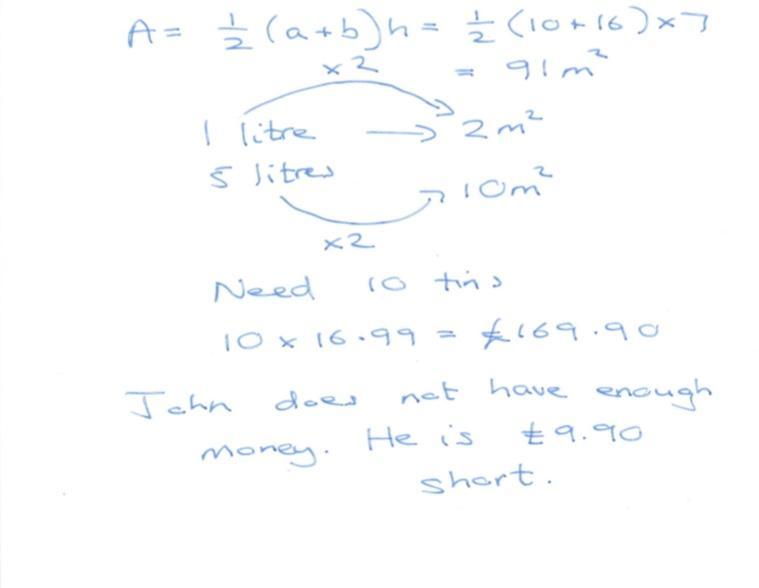 A = 1/2 (a+b)h = 1/2 (10+16) x 7
x2 = 91 m²
1 litre → 2 m²
5 litres → 10 m²
x2
Need 10 tins
10 x 16.99 = £169.90
John does not have enough
money. He is £9.90
short.